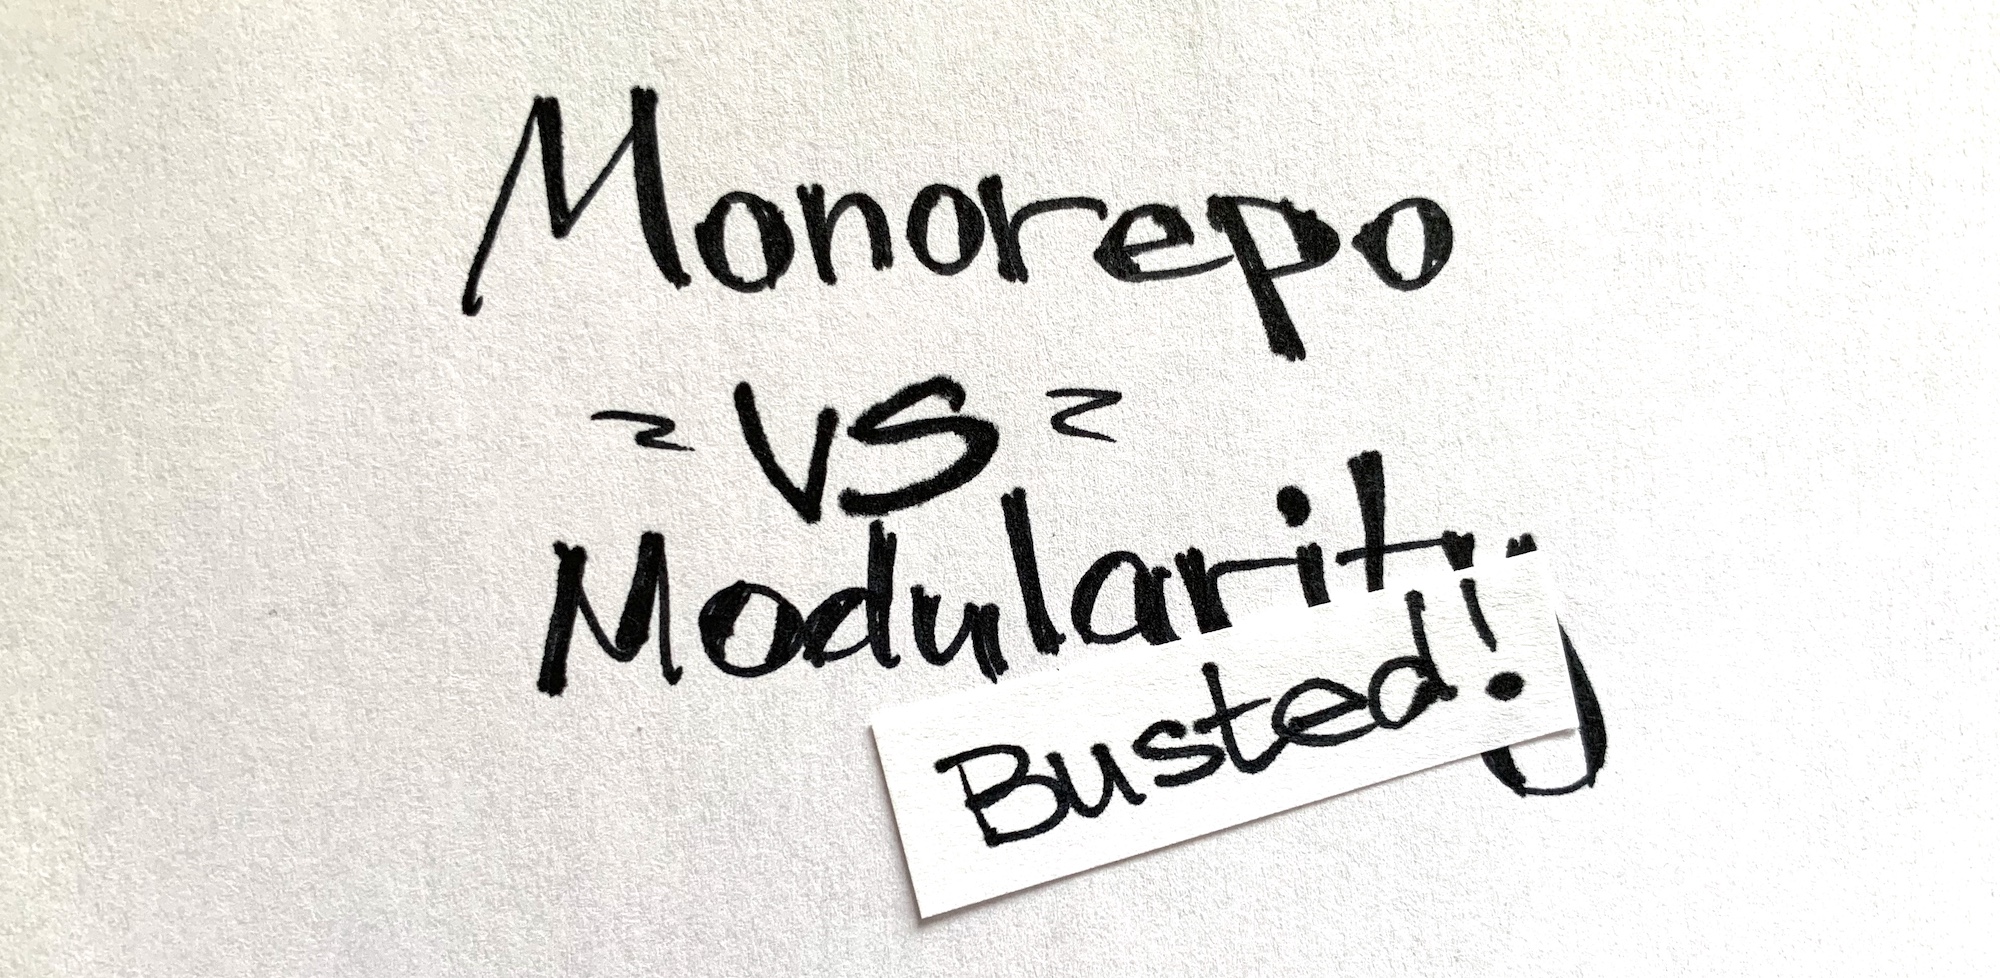 Monorepo
~ vs ~
Modularity
Busted!